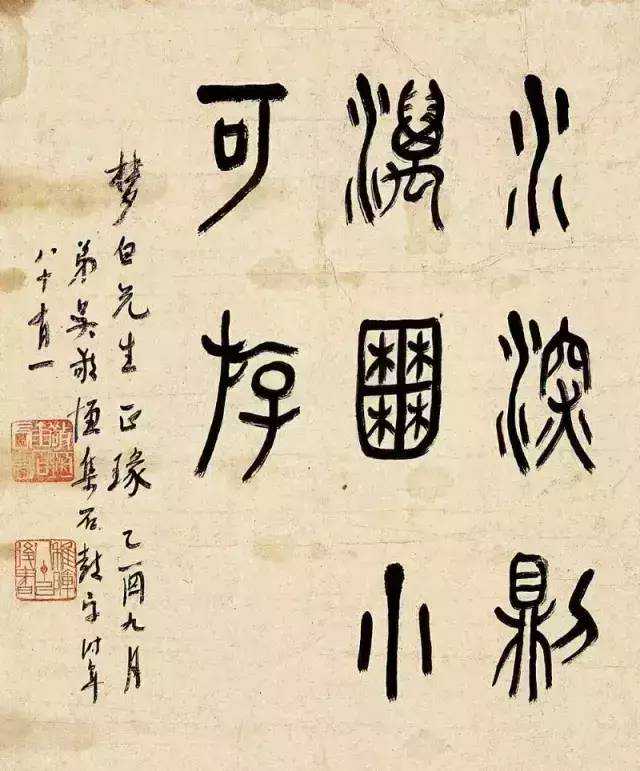 水深則
澫囿小
可存
梦白先生正瑑乙酉九月
弟吴敬恒集石鼓字时年
八十有一